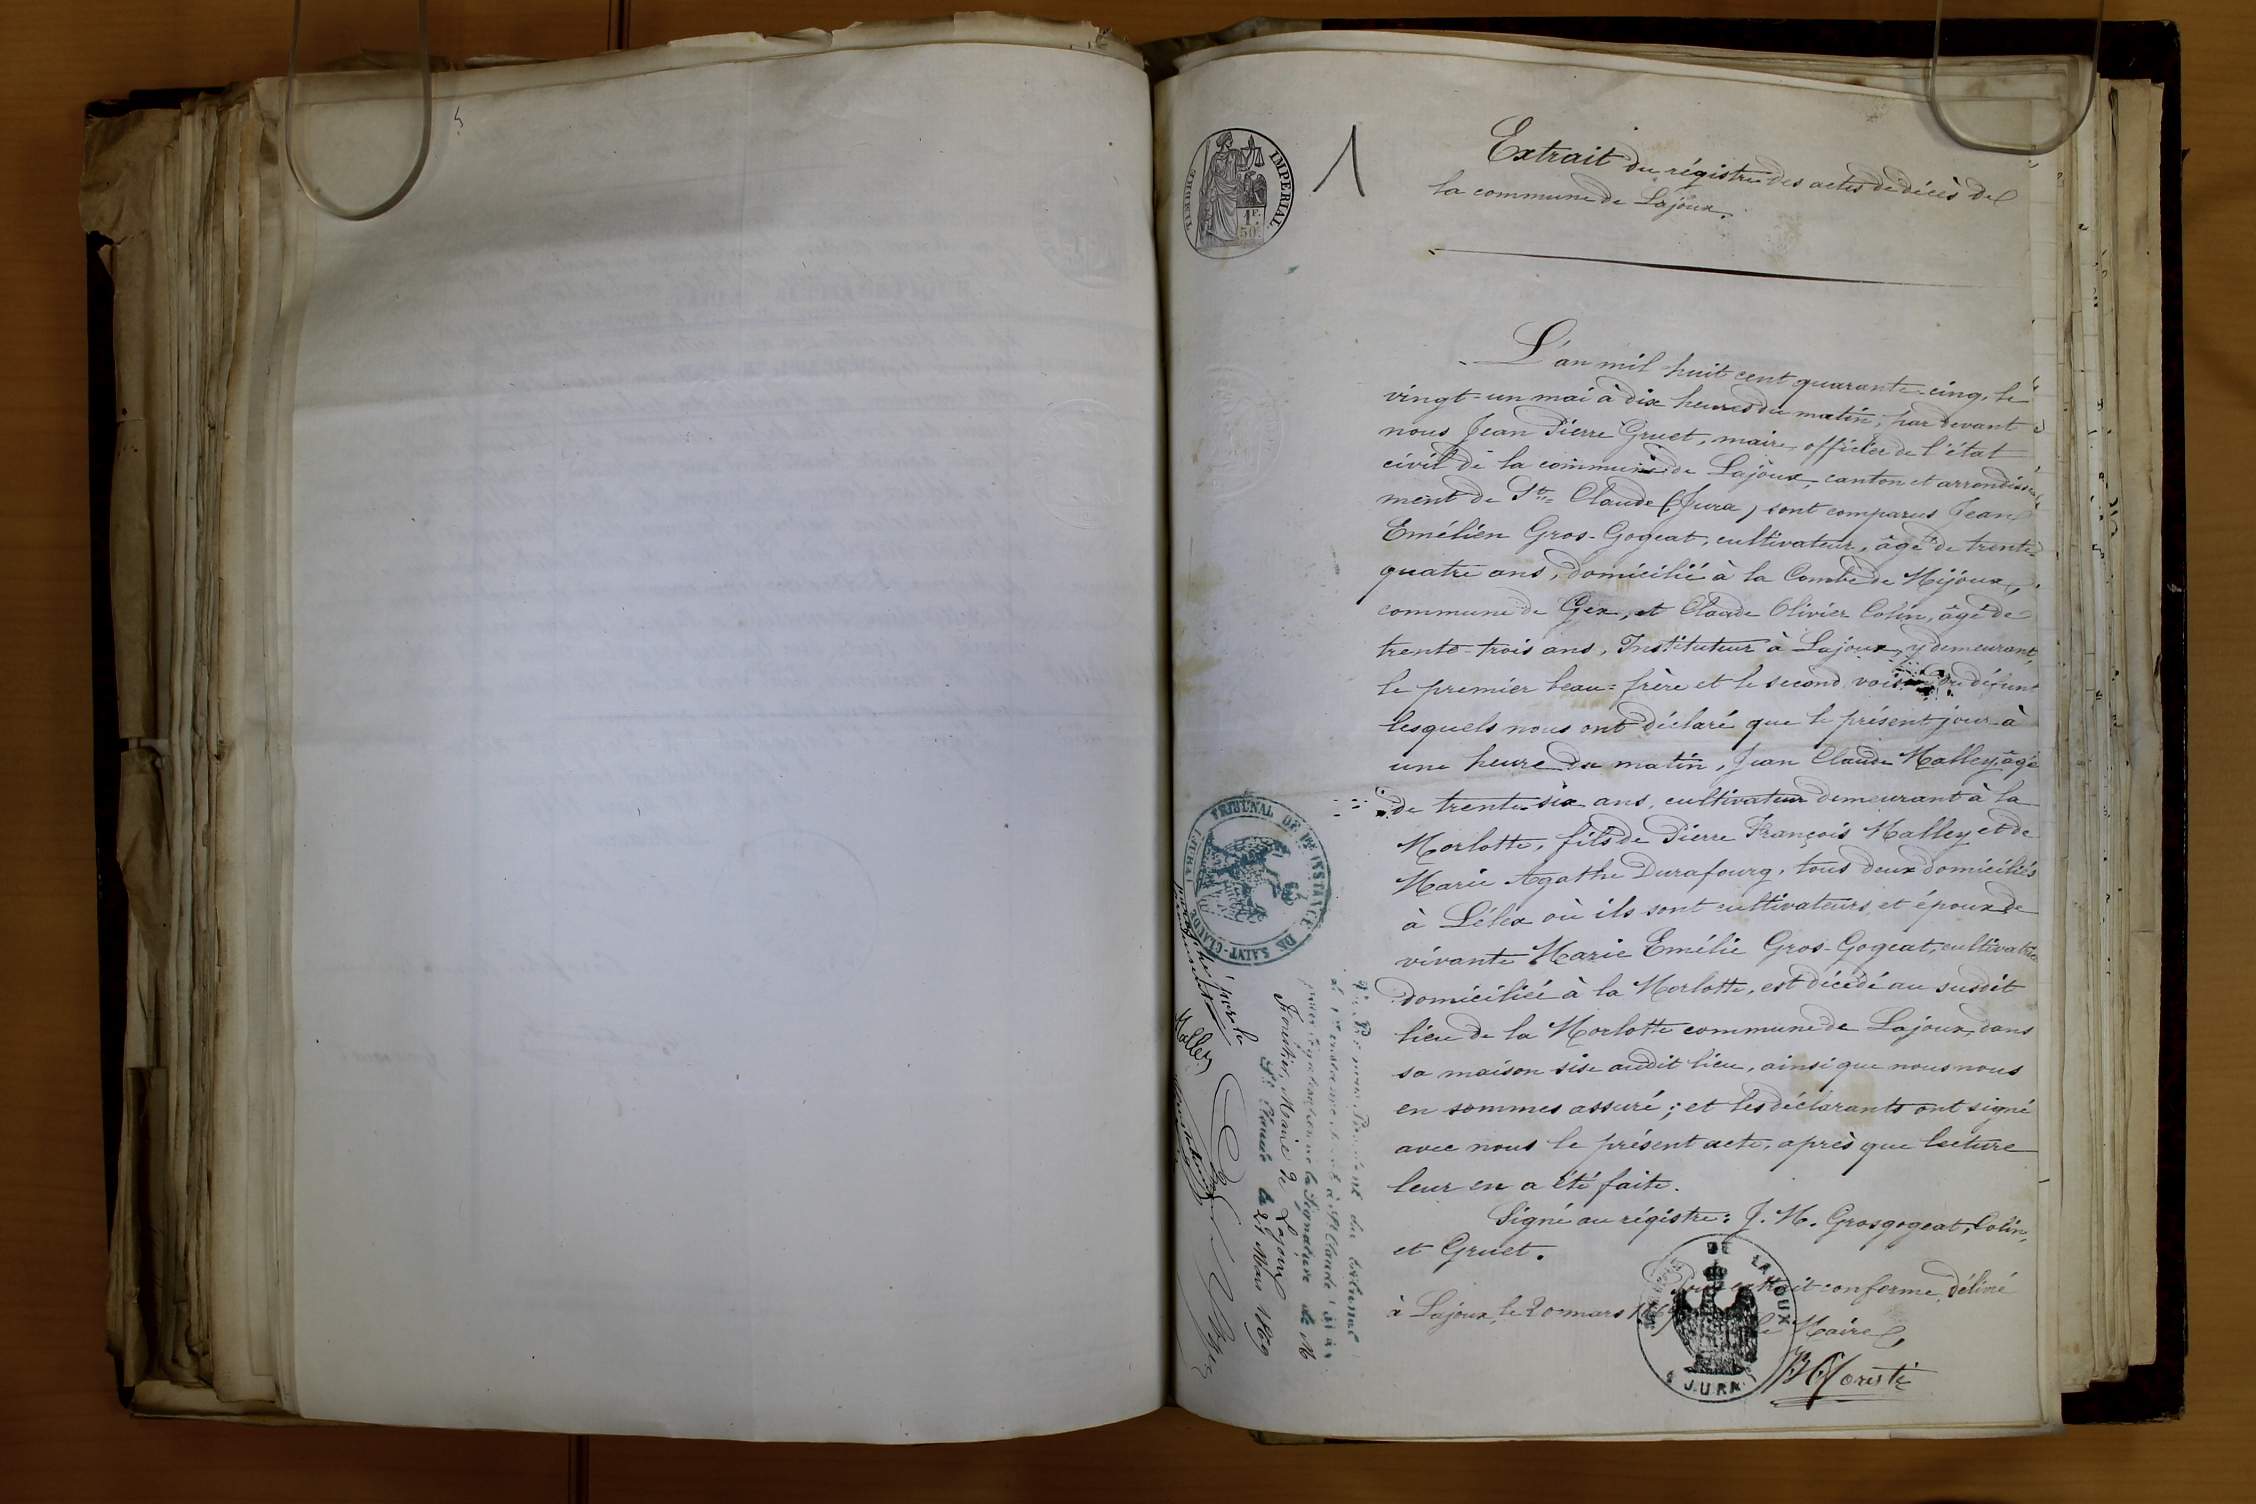 TIMBRE IMPERIAL
1F. 50c
1
Extrait du régistre des actes de décès de
la commune de Lajoux.
L'an mil huit cent quarante-cinq, le
vingt-un mai à dix heures du matin, par devant
nous Jean Pierre Gruet, maire officier de l'état
civil de la commune de Lajoux, canton et arrondisse
ment de St. Claude (Jura) sont comparus Jean
Emélien Gros-Gogeat, cultivateur, âgé de trente-
quatre ans, domicilié à la Combe de Mijoux,
commune de Gex, et Claude Olivier Colin, âgé de
trente-trois ans, Instituteur à Lajoux, y demeurant,
le premier beau-frère et le second voisin du défunt
lesquels nous ont déclaré que le présent jour à
une heure du matin, Jean Claude Malley, âgé
de trente-six ans, cultivateur demeurant à la
Morlotte, fils de Pierre François Malley et de
Marie Agathe Durafourg, tous deux domiciliés
à Lélex où ils sont cultivateurs, et époux de
vivante Marie Emélie Gros-Gogeat, cultivatrice
domiciliée à la Morlotte, est décédé au susdit
lieu de la Morlotte commune de Lajoux, dans
sa maison sise audit lieu, ainsi que nous nous
en sommes assuré; et les déclarants ont signé
avec nous le présent acte, après que lecture
leur en a été faite.
Signé au régistre: J. M. Grosgogeat, Colin,
et Gruet.
Pour extrait conforme, délivré
à Lajoux, le 20 mars
le Maire,
DE LAJOUX
JURA
TRIBUNAL DE 1RE INSTANCE DE SAINT-CLAUDE (JURA)
du tribunal
à St Claude
la Signature de M
Maire de Lajoux
St Claude le 21 Mars 1869
Malley